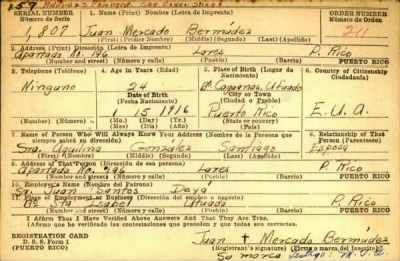 159 Address Changed See Cover Sheet
SERIAL NUMBER 1. Name (Print) Nombre (Letra de Imprenta) ORDER NUMBER
Número de Serie Número de Orden
1,807 Juan Mercado Bermúdez 211
(First) (Primer Nombre) (Middle) (Segundo) (Last) (Apellido)
2. Address (Print) Dirección (Letra de Imprenta)
Apartado No. 196 Lares P. Rico
Number (Número) Street (Número y calle) (Town) (Pueblo) PUERTO RICO
3. Telephone (Teléfono) 4. Age in Years (Edad) 5. Place of Birth (Lugar de Nacimiento) 6. Country of Citizenship Ciudadanía
Ninguno 24 Bo. Caguanas, Utuado
Date of Birth (Fecha Nacimiento) City or Town (Ciudad o Pueblo)
1 15 1916 Puerto Rico E. U. A.
Number (Número) (Mo.) (Day) (Yr.) State or country
(Mes) (Día) (Año) (Estado o país)
7. Name of Person Who Will Always Know Your Address (Nombre de la Persona que siempre sabrá su dirección) 8. Relationship of That Person (Parentesco)
Sra. Aquilina González Santiago Esposa
(First) (Nombre) (Middle) (Segundo) (Last) (Apellido)
9. Address of That Person (Dirección de esa persona)
Apartado No. 196 Lares P. Rico
Number and street (Número y calle) (Town) (Pueblo) PUERTO RICO
10. Employer's Name (Nombre del Patrono)
Sr. Juan Santos Deyá
11. Place of Employment or Business (Dirección del empleo o negocio)
Bo. Sta. Isabel Utuado P. Rico
Number and street (Número y calle) (Town) (Pueblo) PUERTO RICO
I Affirm That I Have Verified Above Answers And That They Are True.
(Afirmo haber verificado las contestaciones que preceden y que todas son correctas.
REGISTRATION CARD
D. S. S. Form 1
(PUERTO RICO)
Juan + Mercado Bermúdez
Registrant's signature (Firma o marca del Inscrito)
Su marca